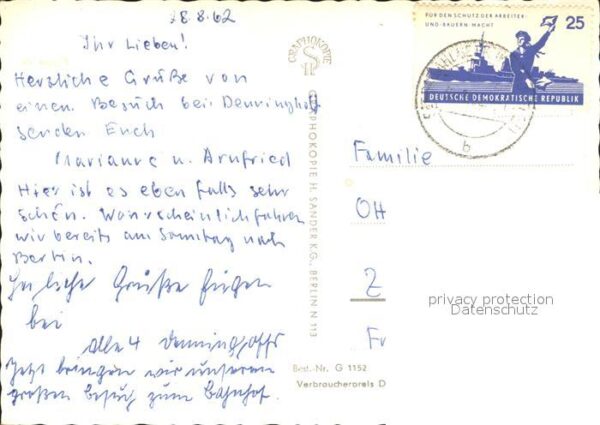 28.8.62
Ihr Lieben!
Herzliche Grüße von
einem Besuch bei Denninghoffs
senden Euch
Marianne u. Arnfried
Hier ist es eben falls sehr
schön. Warscheinlich fahren
wir bereits am Samstag nach
Berlin.
Herzliche Grüße fügen
bei
alle 4 Denninghoffs
Jetzt bringen wir unseren
großen Besuch zum Bahnhof.
GRAPHOKOPIE
GRAPHOKOPIE H. SANDER K.G., BERLIN N 113
FÜR DEN SCHUTZ DER ARBEITER-
UND-BAUERN-MACHT
25
DEUTSCHE DEMOKRATISCHE REPUBLIK
b
Familie
OH
Z
Fr
privacy protection
Datenschutz
Best.-Nr. G 1152
Verbraucherpreis D